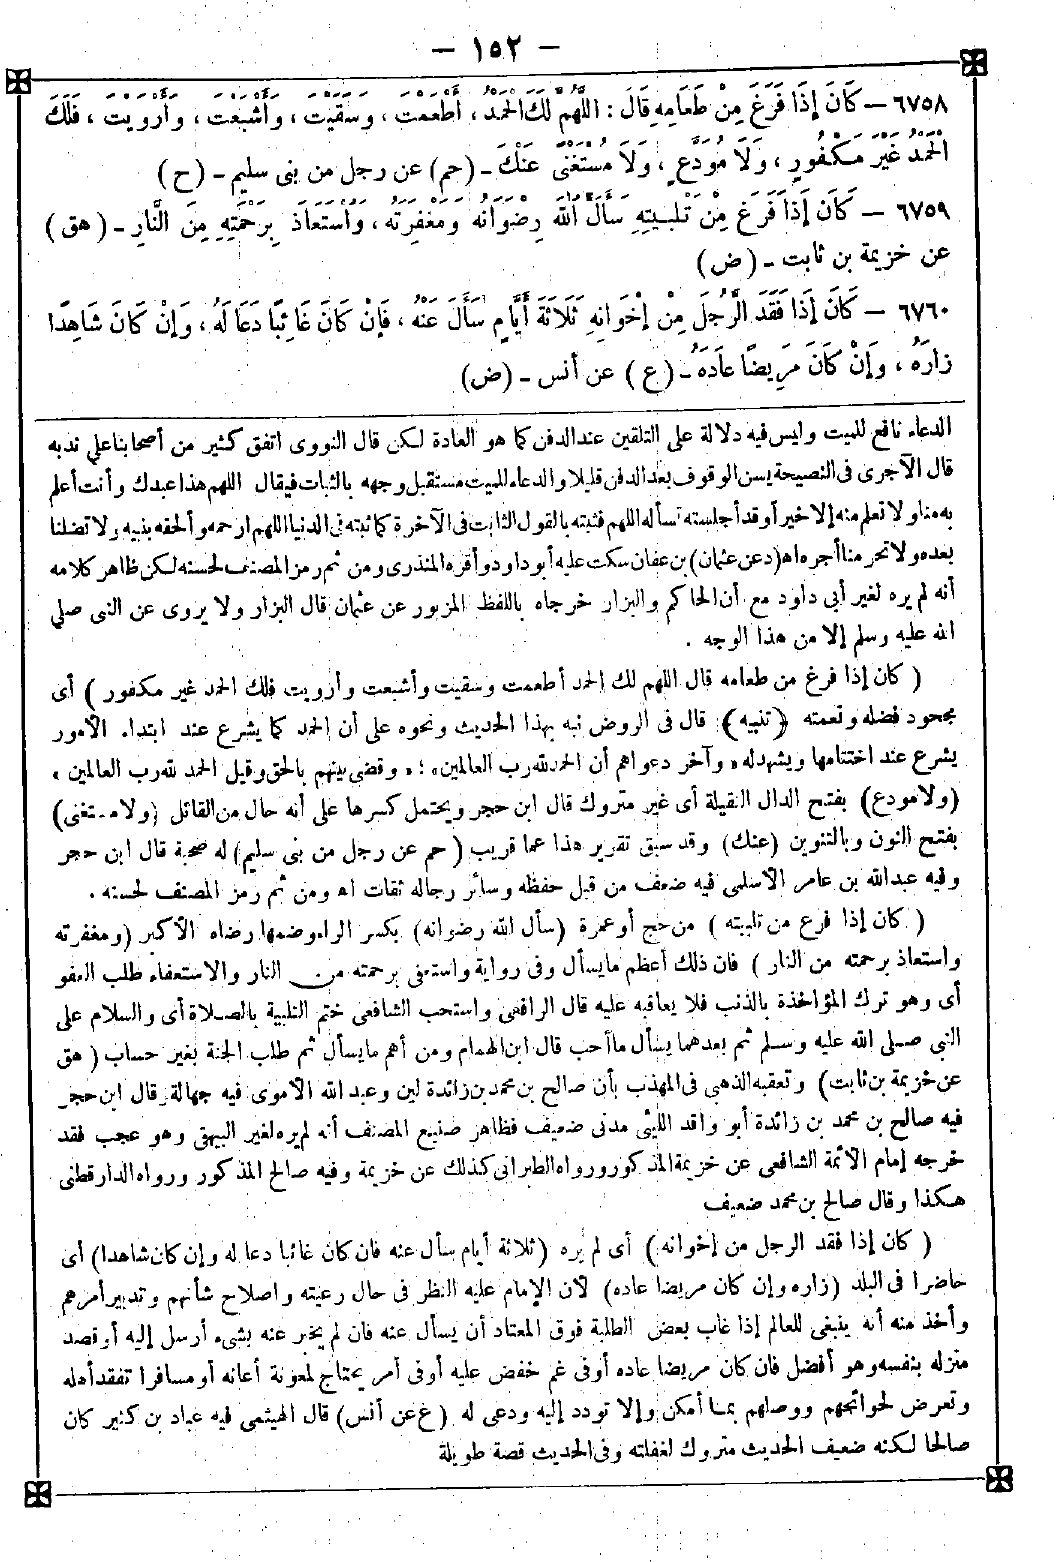 - ١٥٢ -
٦٧٥٨ - كَانَ إِذَا فَرَغَ مِنْ طَعَامِهِ قَالَ : اللَّهُمَّ لَكَ الْحَمْدُ ، أَطْعَمْتَ ، وَسَقَيْتَ ، وَأَشْبَعْتَ ، وَأَرْوَيْتَ ، فَلَكَ
الْحَمْدُ غَيْرَ مَكْفُورٍ ، وَلَا مُوَدَّعٍ ، وَلَا مُسْتَغْنًى عَنْكَ - (حم) عن رجل من بنى سليم - (ح)
٦٧٥٩ - كَانَ إِذَا فَرَغَ مِنْ تَلْبِيَتِهِ سَأَلَ اللهَ رِضْوَانَهُ وَمَغْفِرَتَهُ ، وَاسْتَعَاذَ بِرَحْمَتِهِ مِنَ النَّارِ - (هق)
عن خزيمة بن ثابت - (ض)
٦٧٦٠ - كَانَ إِذَا فَقَدَ الرَّجُلَ مِنْ إِخْوَانِهِ ثَلَاثَةَ أَيَّامٍ سَأَلَ عَنْهُ ، فَإِنْ كَانَ غَائِبًا دَعَا لَهُ ، وَإِنْ كَانَ شَاهِدًا
زَارَهُ ، وَإِنْ كَانَ مَرِيضًا عَادَهُ - (ع) عن أنس - (ض)
الدعاء نافع للميت وليس فيه دلالة على التلقين عند الدفن كما هو العادة لكن قال النووى اتفق كثير من أصحابنا على ندبه
قال الآجرى فى النصيحة يسن الوقوف بعد الدفن قليلا والدعاء للميت مستقبل وجهه بالثبات فيقال اللهم هذا عبدك وأنت أعلم
به منا ولا نعلم منه إلا خيرا وقد أجلسته تسأله اللهم فثبته بالقول الثابت فى الآخرة كما ثبته فى الدنيا اللهم ارحمه وألحقه بنبيه ولا تضلنا
بعده ولا تحرمنا أجره اه (د عن عثمان) بن عفان سكت عليه أبو داود وأقره المنذرى ومن ثم رمز المصنف لحسنه لكن ظاهر كلامه
أنه لم يره لغير أبى داود مع أن الحاكم والبزار خرجاه باللفظ المزبور عن عثمان قال البزار ولا يروى عن النبى صلى
الله عليه وسلم إلا من هذا الوجه .
( كان إذا فرغ من طعامه قال اللهم لك الحمد أطعمت وسقيت وأشبعت وأرويت فلك الحمد غير مكفور ) أى
مجحود فضله ونعمته (تنبيه) قال فى الروض نبه بهذا الحديث ونحوه على أن الحمد كما يشرع عند ابتداء الأمور
يشرع عند اختتامها ويشهد له « وآخر دعواهم أن الحمد لله رب العالمين » ؛ « وقضى بينهم بالحق وقيل الحمد لله رب العالمين »
(ولا مودع) بفتح الدال الثقيلة أى غير متروك قال ابن حجر ويحتمل كسرها على أنه حال من القائل (ولا مستغنى)
بفتح النون وبالتنوين (عنك) وقد سبق تقرير هذا عما قريب (حم عن رجل من بنى سليم) له صحبة قال ابن حجر
وفيه عبد الله بن عامر الأسلمى فيه ضعف من قبل حفظه وسائر رجاله ثقات اه ومن ثم رمز المصنف لحسنه .
( كان إذا فرغ من تلبيته ) من حج أو عمرة (سأل الله رضوانه) بكسر الراء وضمها رضاه الأكبر (ومغفرته
واستعاذ برحمته من النار ) فان ذلك أعظم ما يسأل وفى رواية واستعفى برحمته من النار والاستعفاء طلب العفو
أى وهو ترك المؤاخذة بالذنب فلا يعاقبه عليه قال الرافعى واستحب الشافعى ختم التلبية بالصلاة أى والسلام على
النبى صلى الله عليه وسلم ثم بعدهما يسأل ما أحب قال ابن الهمام ومن أهم ما يسأل ثم طلب الجنة بغير حساب (هق
عن خزيمة بن ثابت) وتعقبه الذهبى فى المهذب بأن صالح بن محمد بن زائدة لين وعبد الله الأموى فيه جهالة وقال ابن حجر
فيه صالح بن محمد بن زائدة أبو واقد الليثى مدنى ضعيف فظاهر صنيع المصنف أنه لم يره لغير البيهقى وهو عجب فقد
خرجه إمام الأئمة الشافعى عن خزيمة المذكور ورواه الطبرانى كذلك عن خزيمة وفيه صالح المذكور ورواه الدارقطنى
هكذا وقال صالح بن محمد ضعيف
( كان إذا فقد الرجل من إخوانه ) أى لم يره (ثلاثة أيام سأل عنه فان كان غائبا دعا له وإن كان شاهدا) أى
حاضرا فى البلد (زاره وإن كان مريضا عاده) لأن الإمام عليه النظر فى حال رعيته وإصلاح شأنهم وتدبير أمرهم
وأخذ منه أنه ينبغى للعالم إذا غاب بعض الطلبة فوق المعتاد أن يسأل عنه فان لم يخبر عنه بشىء أرسل إليه أو قصد
منزله بنفسه وهو أفضل فان كان مريضا عاده أو فى غم خفض عليه أو فى أمر يحتاج لمعونة أعانه أو مسافرا تفقد أهله
وتعرض لحوائجهم ووصلهم بما أمكن وإلا تودد إليه ودعى له (ع عن أنس) قال الهيثمى فيه عباد بن كثير كان
صالحا لكنه ضعيف الحديث متروك لغفلته وفى الحديث قصة طويلة